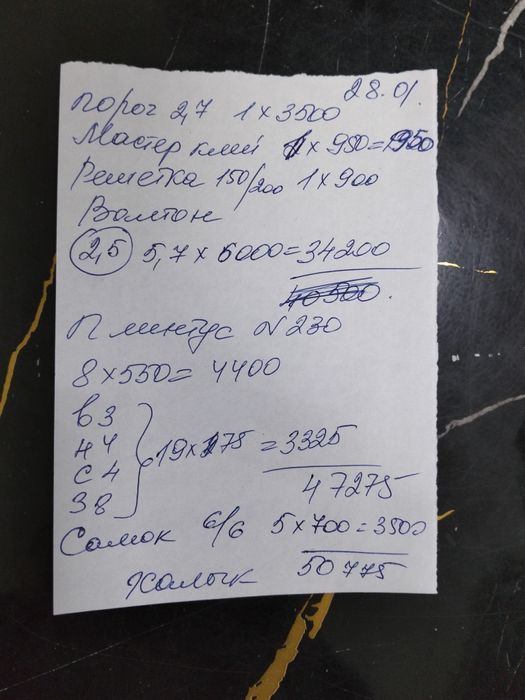 28.01.
Порог 2,7 1 x 3500
Мастер клей 1 x 950=950
Решетка 150/200 1 x 900
Волтон
2,5 5,7 x 6000=34200
40500.
Плинтус №230
8 x 550= 4400
в3
н4
с4
38
19 x 175 =3325
47275
Самок б/б 5 x 700=3500
50775
Халык